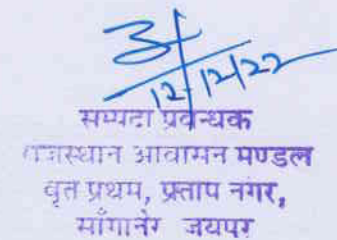 12/12/22
सम्पदा प्रबन्धक
राजस्थान आवासन मण्डल
वृत प्रथम, प्रताप नगर,
साँगानेर जयपुर